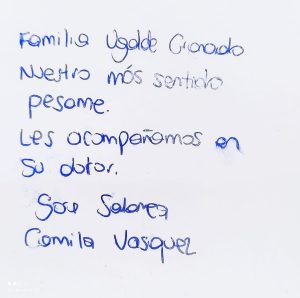 Familia Ugalde Granado
Nuestro más sentido
pesame.
Les acompañamos en
su dolor.
Camila Vasquez